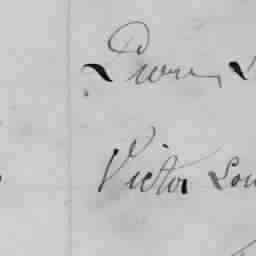 Pierre
Victor Lou